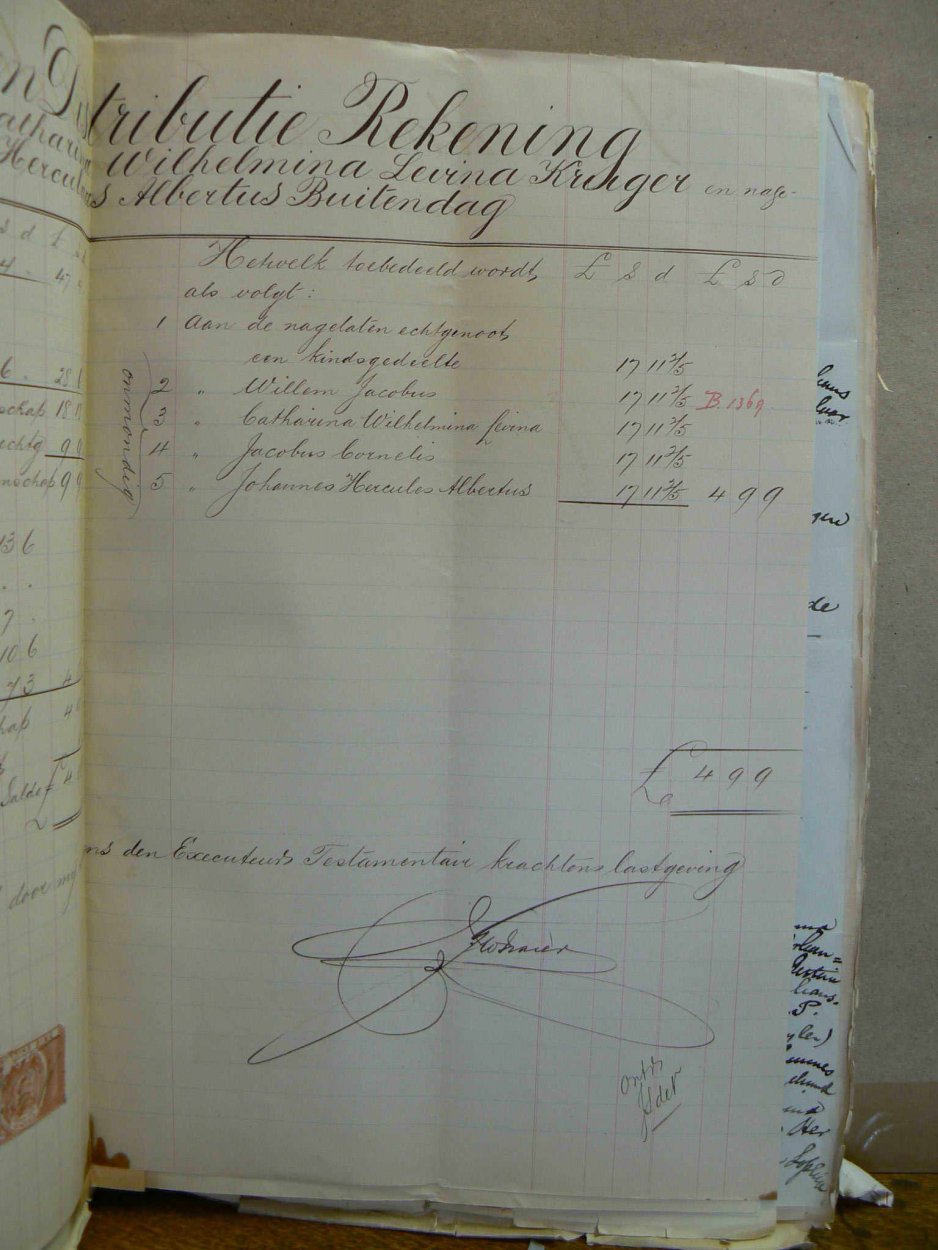 n Distributie Rekening
atharina Wilhelmina Levina Kruger en nage-
Hercules Albertus Buitendag
Hetwelk toebedeeld wordt £ s d £ s d
als volgt:
1 Aan de nagelaten echtgenoot
een kindsgedeelte 17 11 2/5
2 " Willem Jacobus 17 11 2/5 B.1369
3 " Catharina Wilhelmina Levina 17 11 2/5
4 " Jacobus Cornelis 17 11 2/5
5 " Johannes Hercules Albertus 17 11 2/5 4 9 9
onmondig
£ 4 9 9
ns den Executeurs Testamentair krachtens lastgeving
s d £
4 . 47
6 . 28.1
schap 18.
echtg 9 9
nschap 9 9
13 6
7 .
10 6
7 3 4
hap 4
Salde £ 4
door my
de